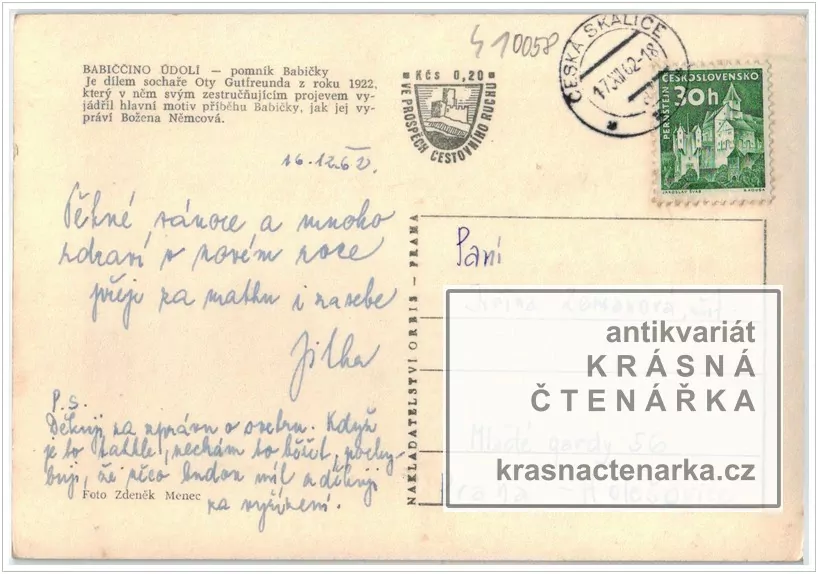 4 10058
BABIČČINO ÚDOLÍ — pomník Babičky
Je dílem sochaře Oty Gutfreunda z roku 1922,
který v něm svým zestručňujícím projevem vy-
jádřil hlavní motiv příběhu Babičky, jak jej vy-
práví Božena Němcová.
Kčs 0,20
VE PROSPĚCH CESTOVNÍHO RUCHU
ČESKÁ SKALICE
17.XII.62-18
ČESKOSLOVENSKO
30h
PERNŠTEJN
JAROSLAV ŠVÁB
16.12.62.
Pěkné vánoce a mnoho
zdraví v novém roce
přeji za mathu i za sebe
Jitka
P.S.
Děkuji za zprávu o svetru. Když
je to takhle, nechám to běžet, pochy-
buji, že něco budou mít a děkuji
za vyřízení.
Foto Zdeněk Menec
NAKLADATELSTVÍ ORBIS — PRAHA
Paní
antikvariát
KRÁSNÁ
ČTENÁŘKA
Mladé gardy 56
krasnactenarka.cz
Praha